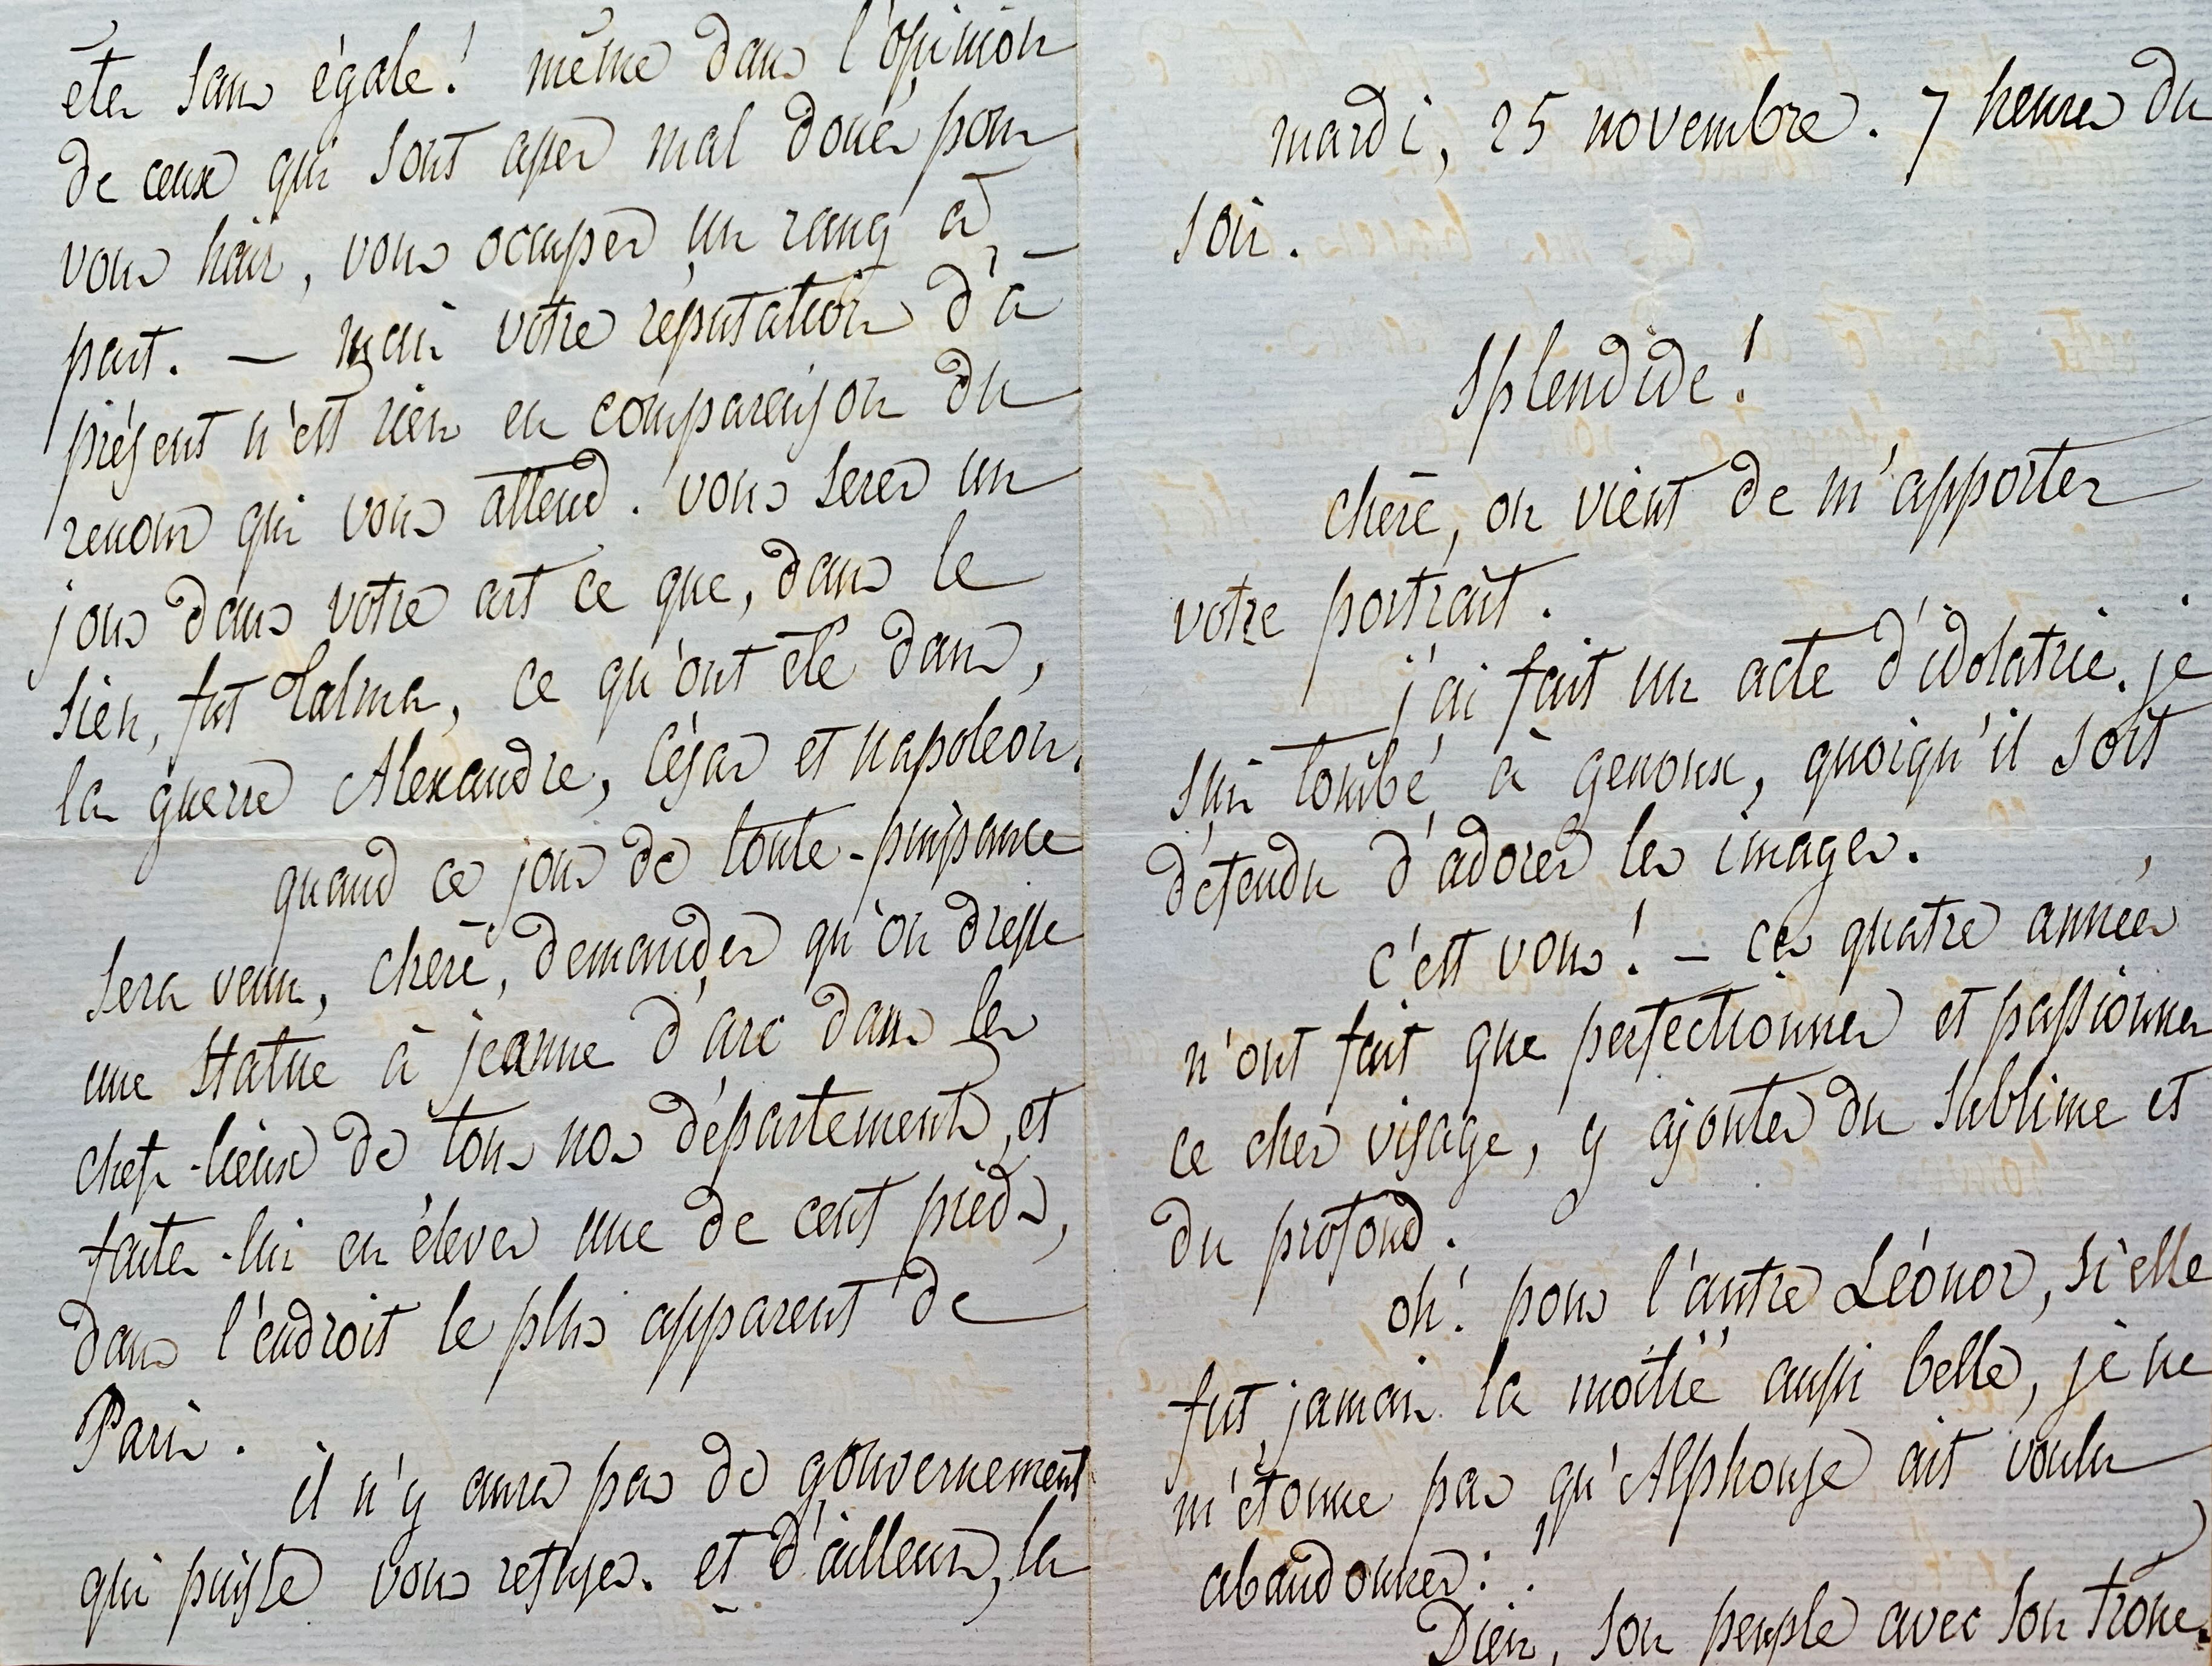 êtes sans égale! même dans l'opinion
de ceux qui sont assez mal doués pour
vous haïr, vous occupez un rang à
part. — mais votre réputation d'à
présent n'est rien en comparaison du
renom qui vous attend. vous serez un
jour dans votre art ce que, dans le
sien, fut Talma, ce qu'ont été dans,
la guerre Alexandre, César et napoléon.
quand ce jour de toute-puissance
sera venu, chère, demandez qu'on dresse
une statue à jeanne d'arc dans les
chefs-lieux de tous nos départements, et
faites-lui en élever une de cent pieds,
dans l'endroit le plus apparent de
Paris.
il n'y aura pas de gouvernement
qui puisse vous refuser. et d'ailleurs, la
mardi, 25 novembre. 7 heures du
soir.
Splendide!
chère, on vient de m'apporter
votre portrait.
j'ai fait un acte d'idolatrie. je
suis tombé à genoux, quoiqu'il soit
défendu d'adorer les images.
c'est vous! — ces quatre années
n'ont fait que perfectionner et passionner
ce cher visage, y ajouter du sublime et
du profond.
oh! pour l'autre Léonor, si elle
fut jamais la moitié aussi belle, je ne
m'étonne pas qu'Alphonse ait voulu
abandonner:
Dieu, son peuple avec son trône.